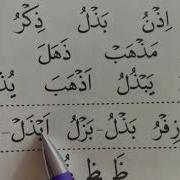 اِذْنُ بَذْلُ ذِكْرُ
مَذْهَبْ ذَهَلَ
يَبْذُلُ اَذْهَبَ
زِفْرُ بَذْلُ - بَزْلُ اَبْذَلَ -
ظَ ظِ